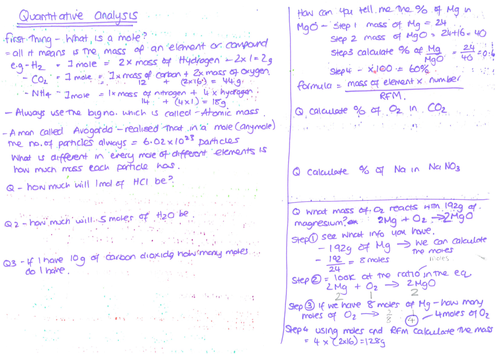 Quantitative Analysis
First thing - What is a mole?
= all it means is the mass of an element or compound
e.g - H2 = 1 mole = 2 x mass of Hydrogen = 2 x 1 = 2g
- CO2 = 1 mole = 1 x mass of carbon + 2 x mass of oxygen
12 + (2x16) = 44g
- NH4 = 1 mole = 1 x mass of nitrogen + 4 x hydrogen
14 + (4x1) = 18g
- Always use the big no. which is called - Atomic mass
- A man called Avogado - realised that in a mole (any mole)
the no. of particles always = 6.02 x 10^23 particles
What is different in every mole of different elements is
how much mass each particle has.
Q - how much will 1 mol of HCl be?
Q2 - how much will 5 moles of H2O be
Q3 - if I have 10g of carbon dioxide how many moles
do I have.
How can you tell me the % of Mg in
MgO - Step 1 mass of Mg = 24
Step 2 mass of MgO = 24+16 = 40
Step 3 calculate % of Mg/MgO = 24/40 = 0.6
Step 4 - x 100 = 60%
formula = mass of element x number
RFM.
Q calculate % of O2 in CO2
Q calculate % of Na in NaNO3
Q What mass of O2 reacts with 192g of
magnesium? 2Mg + O2 → 2MgO
Step 1 see what info you have.
- 192g of Mg → we can calculate
the moles
- 192/24 = 8 moles
Step 2 = look at the ratio in the eq
2Mg + O2 → 2MgO
2 1 2
Step 3 if we have 8 moles of Mg - how many
moles of O2 → 4 moles of O2
Step 4 using moles and RFM calculate the mass
= 4 x (2x16) = 128g